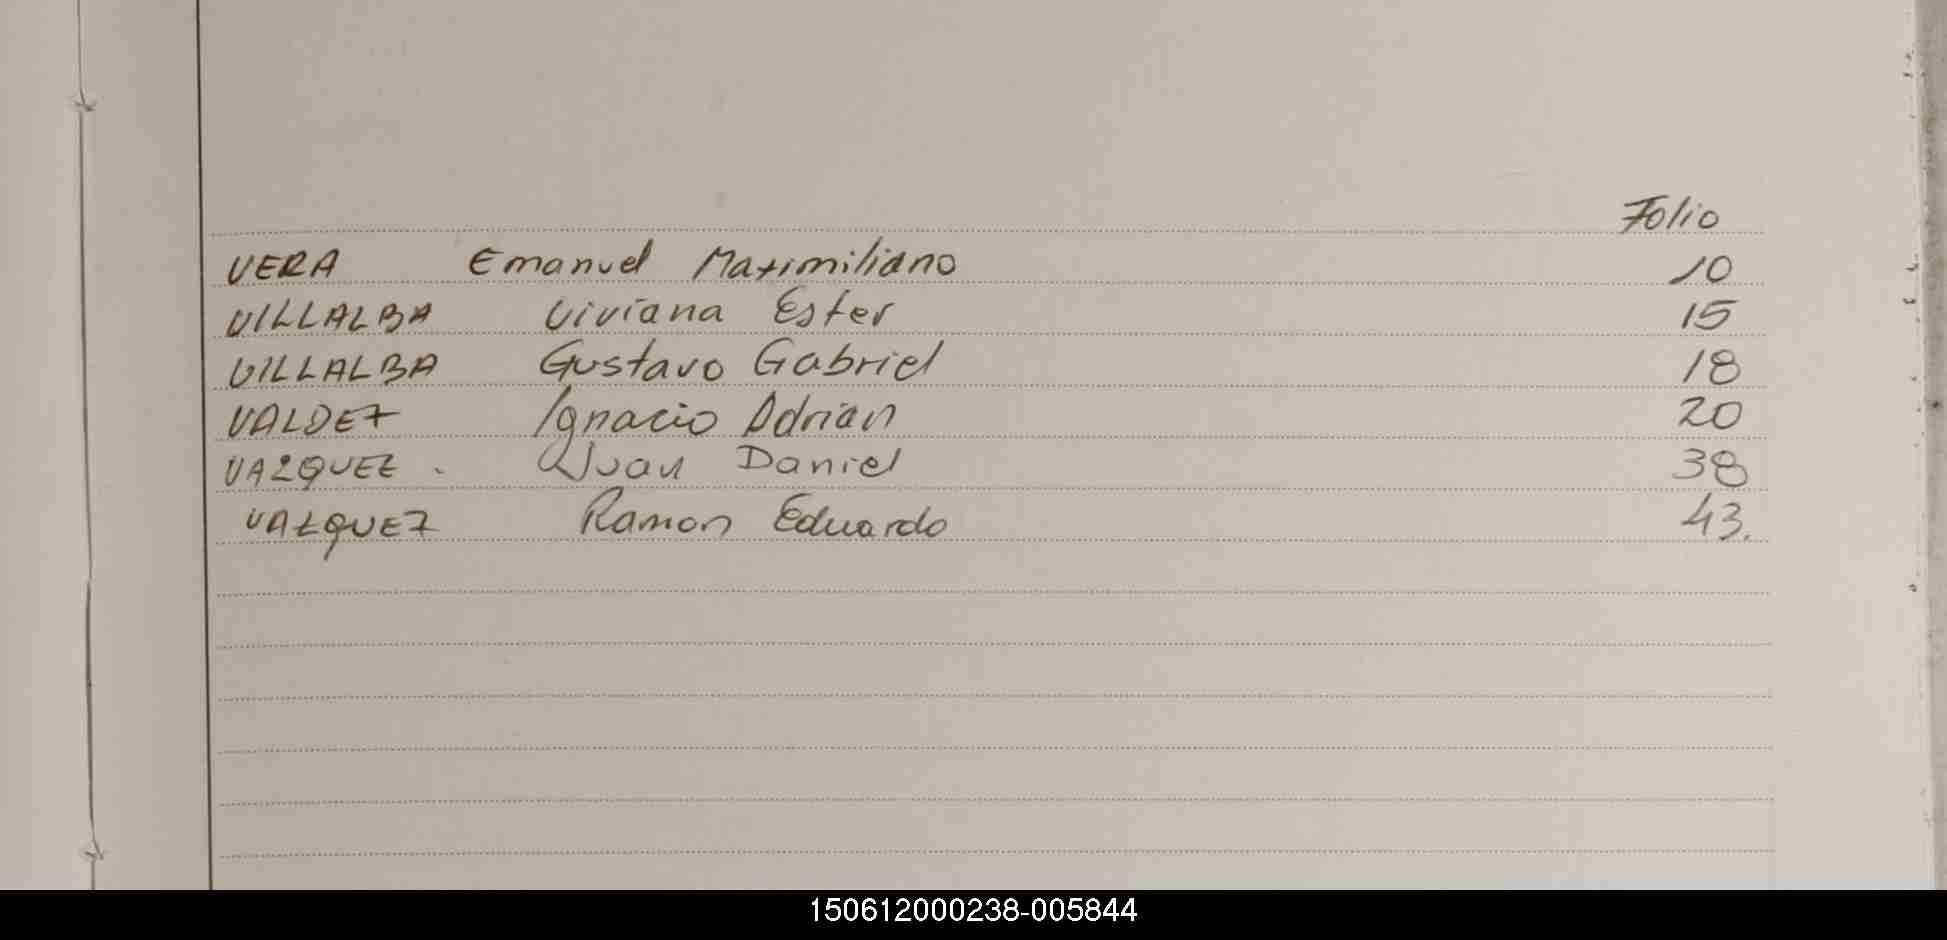 Folio
VERA Emanuel Maximiliano 10
VILLALBA Viviana Ester 15
VILLALBA Gustavo Gabriel 18
VALDEZ Ignacio Adrian 20
VAZQUEZ . Juan Daniel 38
VAZQUEZ Ramon Eduardo 43.
150612000238-005844